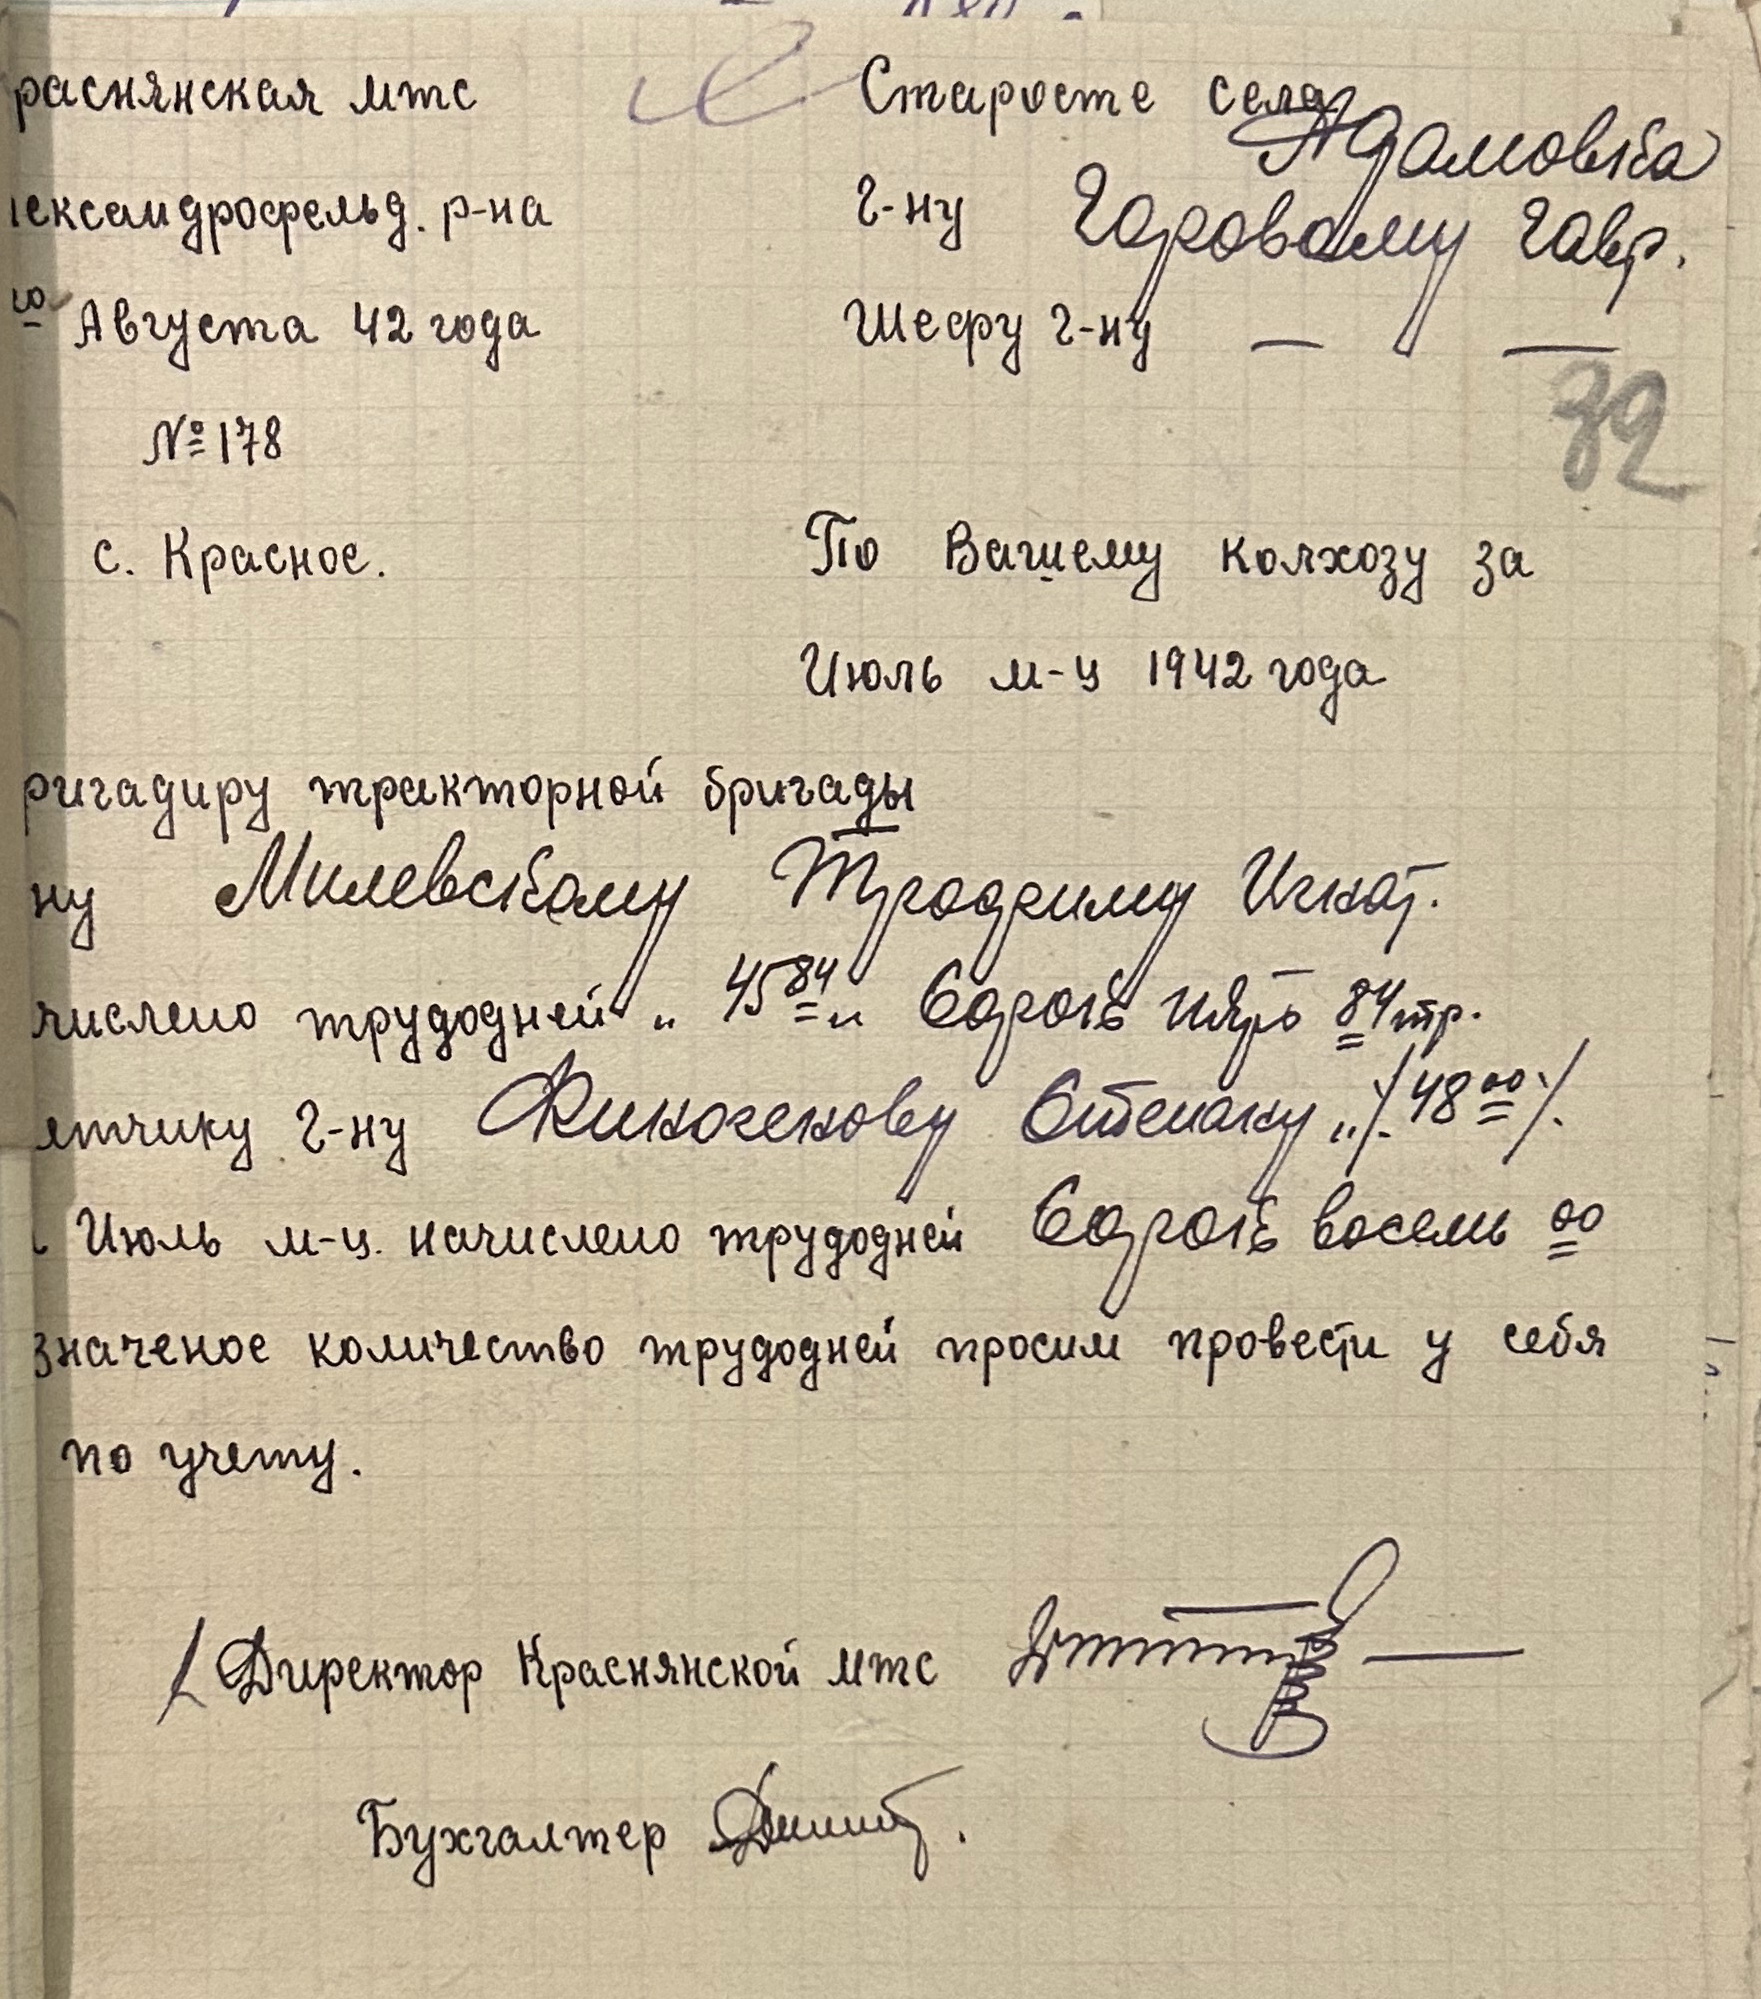 раснянская мтс
Старосте села Адамовка
лександрофельд. р-на
г-ну Яровому Гавр.
го Августа 42 года
Шефру г-ну — —
32
№ 178
с. Красное.
По Вашему колхозу за
Июль м-ц 1942 года
ригадиру тракторной бригады
ну Милевскому Трофиму Игнат.
числено трудодней „ 45 84 " Сорок пять 84 тр.
етчику г-ну Финогенову Степану „ /. 48 00 /.
Июль м-ц. начислено трудодней Сорок восемь 00
значеное количество трудодней просим провести у себя
по учету.
Директор Краснянской мтс
Бухгалтер